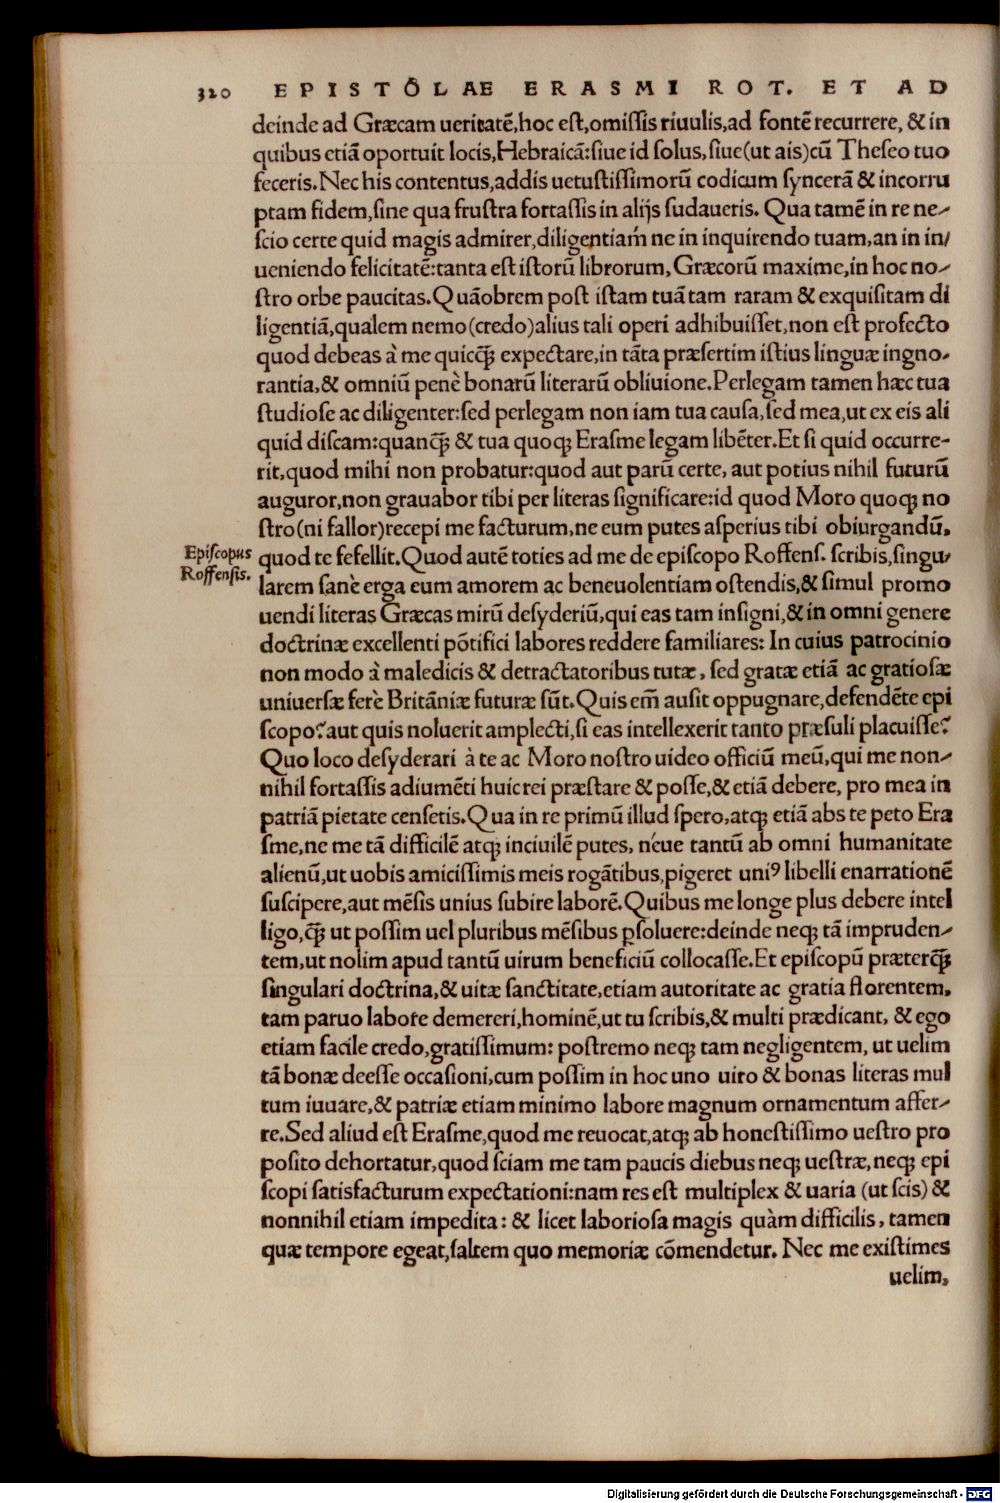 320 EPISTOLAE ERASMI ROT. ET AD
deinde ad Græcam ueritatẽ,hoc eſt,omiſſis riuulis,ad fontẽ recurrere, & in
quibus etiã oportuit locis,Hebraicã:ſiue id ſolus,ſiue(ut ais)cũ Theſeo tuo
feceris.Nec his contentus,addis uetuſtiſſimorũ codicum ſyncerã & incorru
ptam fidem,ſine qua fruſtra fortaſſis in alijs ſudaueris. Qua tamẽ in re ne-
ſcio certe quid magis admirer,diligentiam ne in inquirendo tuam,an in in/
ueniendo felicitatẽ:tanta eſt iſtorũ librorum,Græcorũ maxime,in hoc no-
ſtro orbe paucitas.Quãobrem poſt iſtam tuã tam raram & exquiſitam di
ligentiã,qualem nemo(credo)alius tali operi adhibuiſſet,non eſt profecto
quod debeas à me quicq̃ expectare,in tãta præſertim iſtius linguæ ingno-
rantia,& omniũ penè bonarũ literarũ obliuione.Perlegam tamen hæc tua
ſtudioſe ac diligenter:ſed perlegam non iam tua cauſa,ſed mea,ut ex eis ali
quid diſcam:quanq̃ & tua quoq; Eraſme legam libẽter.Et ſi quid occurre-
rit,quod mihi non probatur:quod aut parũ certe, aut potius nihil futurũ
auguror,non grauabor tibi per literas ſignificare:id quod Moro quoq; no
ſtro(ni fallor)recepi me facturum,ne eum putes aſperius tibi obiurgandũ,
Epiſcopus
Roffenſis.
quod te fefellit.Quod autẽ toties ad me de epiſcopo Roffenſ. ſcribis,ſingu/
larem ſanè erga eum amorem ac beneuolentiam oſtendis,& ſimul promo
uendi literas Græcas mirũ deſyderiũ,qui eas tam inſigni,& in omni genere
doctrinæ excellenti põtifici labores reddere familiares: In cuius patrocinio
non modo à maledicis & detractatoribus tutæ, ſed gratæ etiã ac gratioſæ
uniuerſæ ferè Britãniæ futuræ ſũt.Quis em̃ auſit oppugnare,defendẽte epi
ſcopo?aut quis noluerit amplecti,ſi eas intellexerit tanto præſuli placuiſſe?
Quo loco deſyderari à te ac Moro noſtro uideo officiũ meũ,qui me non-
nihil fortaſſis adiumẽti huic rei præſtare & poſſe,& etiã debere, pro mea in
patriã pietate cenſetis.Qua in re primũ illud ſpero,atq; etiã abs te peto Era
ſme,ne me tã difficilẽ atq; inciuilẽ putes, néue tantũ ab omni humanitate
alienũ,ut uobis amiciſſimis meis rogãtibus,pigeret uniꝰ libelli enarrationẽ
ſuſcipere,aut mẽſis unius ſubire laborẽ.Quibus me longe plus debere intel
ligo,q̃ ut poſſim uel pluribus mẽſibus ꝑſoluere:deinde neq; tã impruden-
tem,ut nolim apud tantũ uirum beneficiũ collocaſſe.Et epiſcopũ præterq̃
ſingulari doctrina,& uitæ ſanctitate,etiam autoritate ac gratia florentem,
tam paruo labore demereri,hominẽ,ut tu ſcribis,& multi prædicant, & ego
etiam facile credo,gratiſſimum: poſtremo neq; tam negligentem, ut uelim
tã bonæ deeſſe occaſioni,cum poſſim in hoc uno uiro & bonas literas mul
tum iuuare,& patriæ etiam minimo labore magnum ornamentum affer-
re.Sed aliud eſt Eraſme,quod me reuocat,atq; ab honeſtiſſimo ueſtro pro
poſito dehortatur,quod ſciam me tam paucis diebus neq; ueſtræ,neq; epi
ſcopi ſatisfacturum expectationi:nam res eſt multiplex & uaria (ut ſcis) &
nonnihil etiam impedita: & licet laborioſa magis quàm difficilis, tamen
quæ tempore egeat,ſaltem quo memoriæ cõmendetur. Nec me exiſtimes
uelim,
Digitalisierung gefördert durch die Deutsche Forschungsgemeinschaft - DFG